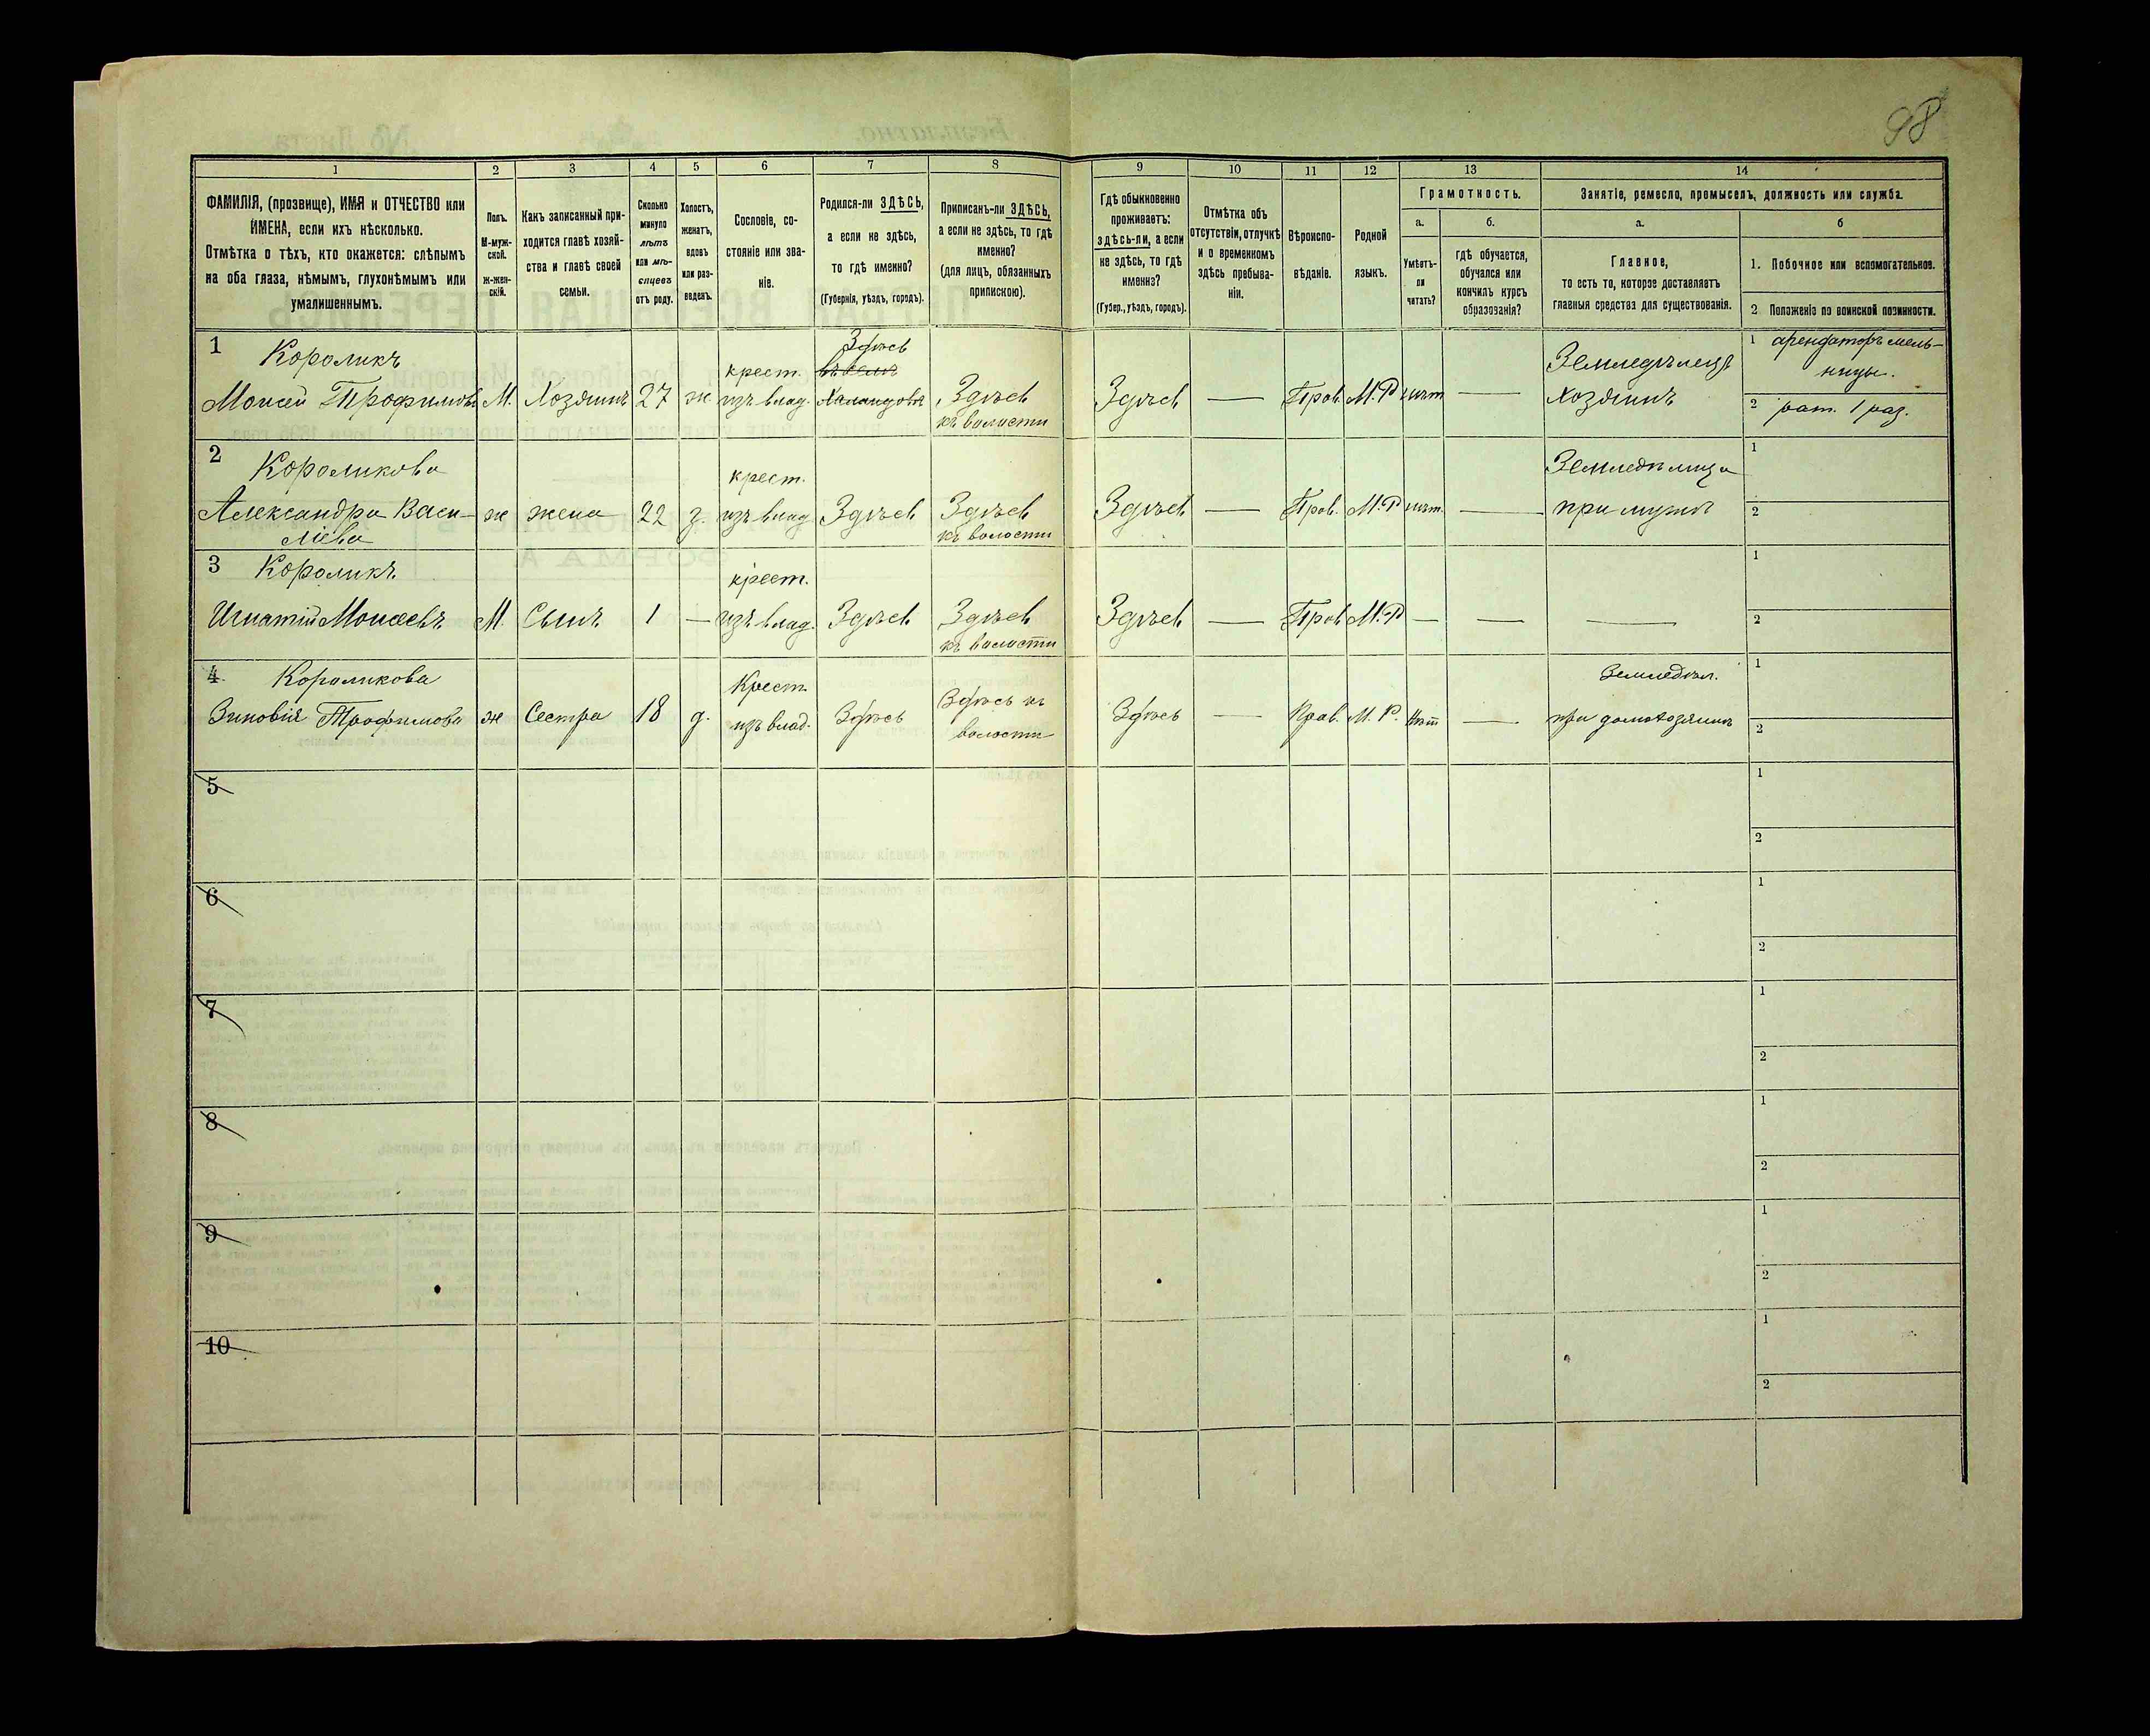 98
1
2
3
4
5
6
7
8
9
10
11
12
13
14
ФАМИЛІЯ, (прозвище), ИМЯ и ОТЧЕСТВО или
ИМЕНА, если ихъ нѣсколько.
Отмѣтка о тѣхъ, кто окажется: слѣпымъ
на оба глаза, нѣмымъ, глухонѣмымъ или
умалишеннымъ.
Полъ.
М-муж-
ской.
ж-жен-
скій.
Какъ записанный при-
ходится главѣ хозяй-
ства и главѣ своей
семьи.
Сколько
минуло
лѣтъ
или мѣ-
сяцевъ
отъ роду.
Холостъ,
женатъ,
вдовъ
или раз-
веденъ.
Сословіе, со-
стояніе или зва-
ніе.
Родился-ли ЗДѢСЬ,
а если не здѣсь,
то гдѣ именно?
(Губернія, уѣздъ, городъ).
Приписанъ-ли ЗДѢСЬ,
а если не здѣсь, то гдѣ
именно?
(для лицъ, обязанныхъ
припискою).
Гдѣ обыкновенно
проживаетъ:
здѣсь-ли, а если
не здѣсь, то гдѣ
именно?
(Губер., уѣздъ, городъ).
Отмѣтка объ
отсутствіи, отлучкѣ
и о временномъ
здѣсь пребыва-
ніи.
Вѣроиспо-
вѣданіе.
Родной
языкъ.
Грамотность.
а.
Умѣетъ-
ли
читать?
б.
гдѣ обучается,
обучался или
кончилъ курсъ
образованія?
Занятіе, ремесло, промыселъ, должность или служба.
а.
Главное,
то есть то, которое доставляетъ
главныя средства для существованія.
б
1. Побочное или вспомогательное.
2 Положеніе по воинской повинности.
1 Короликъ
Здѣсь
крест.
Земледѣлецъ
1 арендаторъ мель-
ницы.
Моисей Трофимовъ М. Хозяинъ 27 ж изъ влад. Здѣсь Здѣсь — Прав. М.Р нѣт — Хозяинъ
къ волости
2 рат. 1 раз.
2 Короликова
крест.
Земледѣлица
1
Александра Васи- ж жена 22 з. изъ влад Здѣсь Здѣсь Здѣсь — Прав. М.Р нѣт. — при мужѣ
2
лiева
къ волости
3 Короликъ
крест.
1
Игнатій Моисеевъ М. Сынъ 1 — изъ влад. Здѣсь Здѣсь Здѣсь — Прав М.Р — — —
2
къ волости
4 Короликова
Крест.
Земледѣл.
1
Зиновія Трофимова ж Сестра 18 д. изъ влад. Здѣсь Здѣсь къ Здѣсь — Прав. М. Р. Нѣт — при домохозяинѣ
2
волости
5
1
2
6
1
2
7
1
2
8
1
2
9
1
2
10
1
2